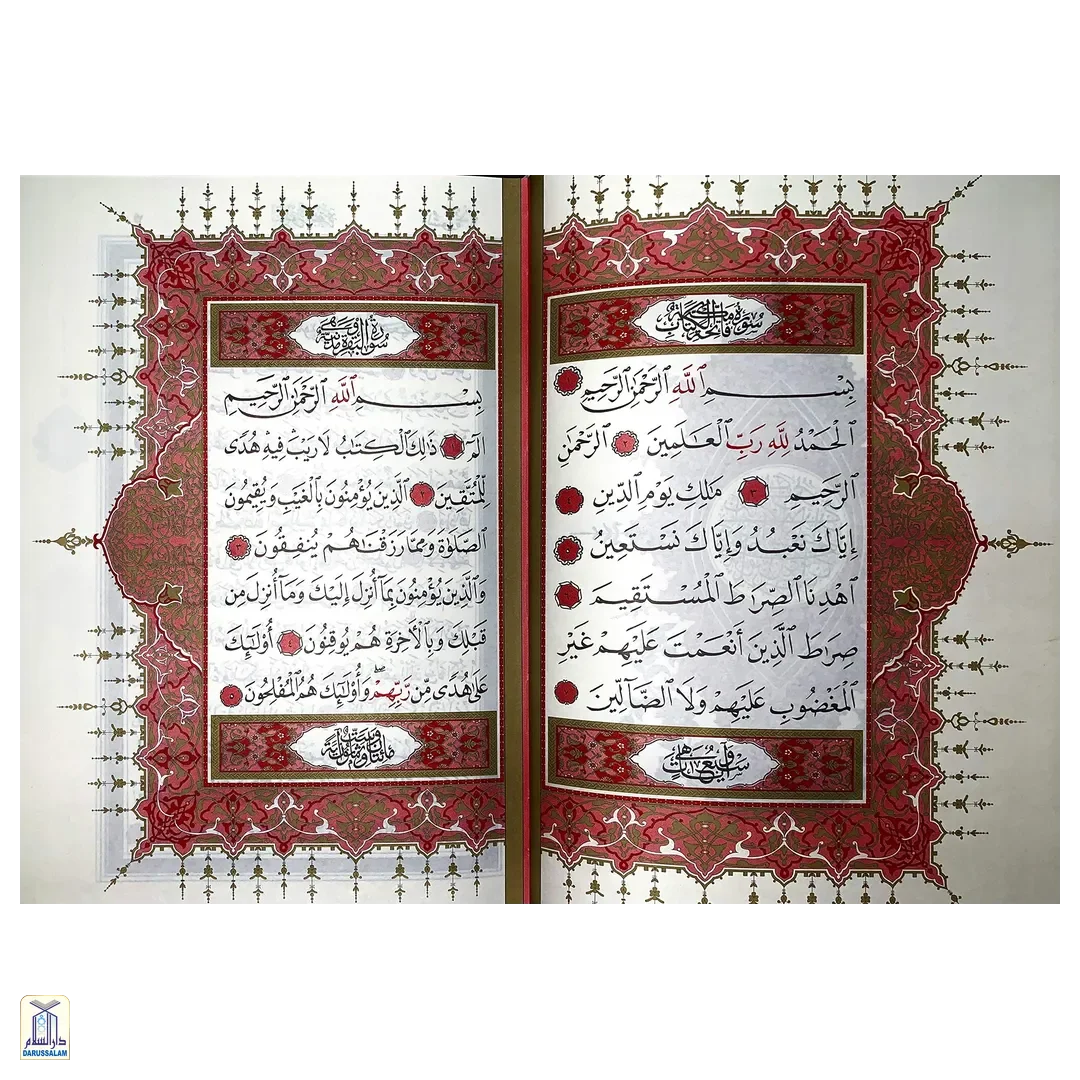 سُورَةُ فَاتِحَةِ الْكِتَابِ
بِسْمِ ٱللَّهِ ٱلرَّحْمَٰنِ ٱلرَّحِيمِ ١
ٱلْحَمْدُ لِلَّهِ رَبِّ ٱلْعَٰلَمِينَ ٢ ٱلرَّحْمَٰنِ
ٱلرَّحِيمِ ٣ مَٰلِكِ يَوْمِ ٱلدِّينِ ٤
إِيَّاكَ نَعْبُدُ وَإِيَّاكَ نَسْتَعِينُ ٥
ٱهْدِنَا ٱلصِّرَٰطَ ٱلْمُسْتَقِيمَ ٦
صِرَٰطَ ٱلَّذِينَ أَنْعَمْتَ عَلَيْهِمْ غَيْرِ
ٱلْمَغْضُوبِ عَلَيْهِمْ وَلَا ٱلضَّآلِّينَ ٧
سُورَةُ الْبَقَرَةِ مَدَنِيَّةٌ
بِسْمِ ٱللَّهِ ٱلرَّحْمَٰنِ ٱلرَّحِيمِ
الٓمٓ ١ ذَٰلِكَ ٱلْكِتَٰبُ لَا رَيْبَ فِيهِ هُدًى
لِّلْمُتَّقِينَ ٢ ٱلَّذِينَ يُؤْمِنُونَ بِٱلْغَيْبِ وَيُقِيمُونَ
ٱلصَّلَوٰةَ وَمِمَّا رَزَقْنَٰهُمْ يُنفِقُونَ ٣
وَٱلَّذِينَ يُؤْمِنُونَ بِمَآ أُنزِلَ إِلَيْكَ وَمَآ أُنزِلَ مِن
قَبْلِكَ وَبِٱلْأَخِرَةِ هُمْ يُوقِنُونَ ٤ أُو۟لَٰٓئِكَ
عَلَىٰ هُدًى مِّن رَّبِّهِمْ ۖ وَأُو۟لَٰٓئِكَ هُمُ ٱلْمُفْلِحُونَ ٥
دارالسلام
DARUSSALAM